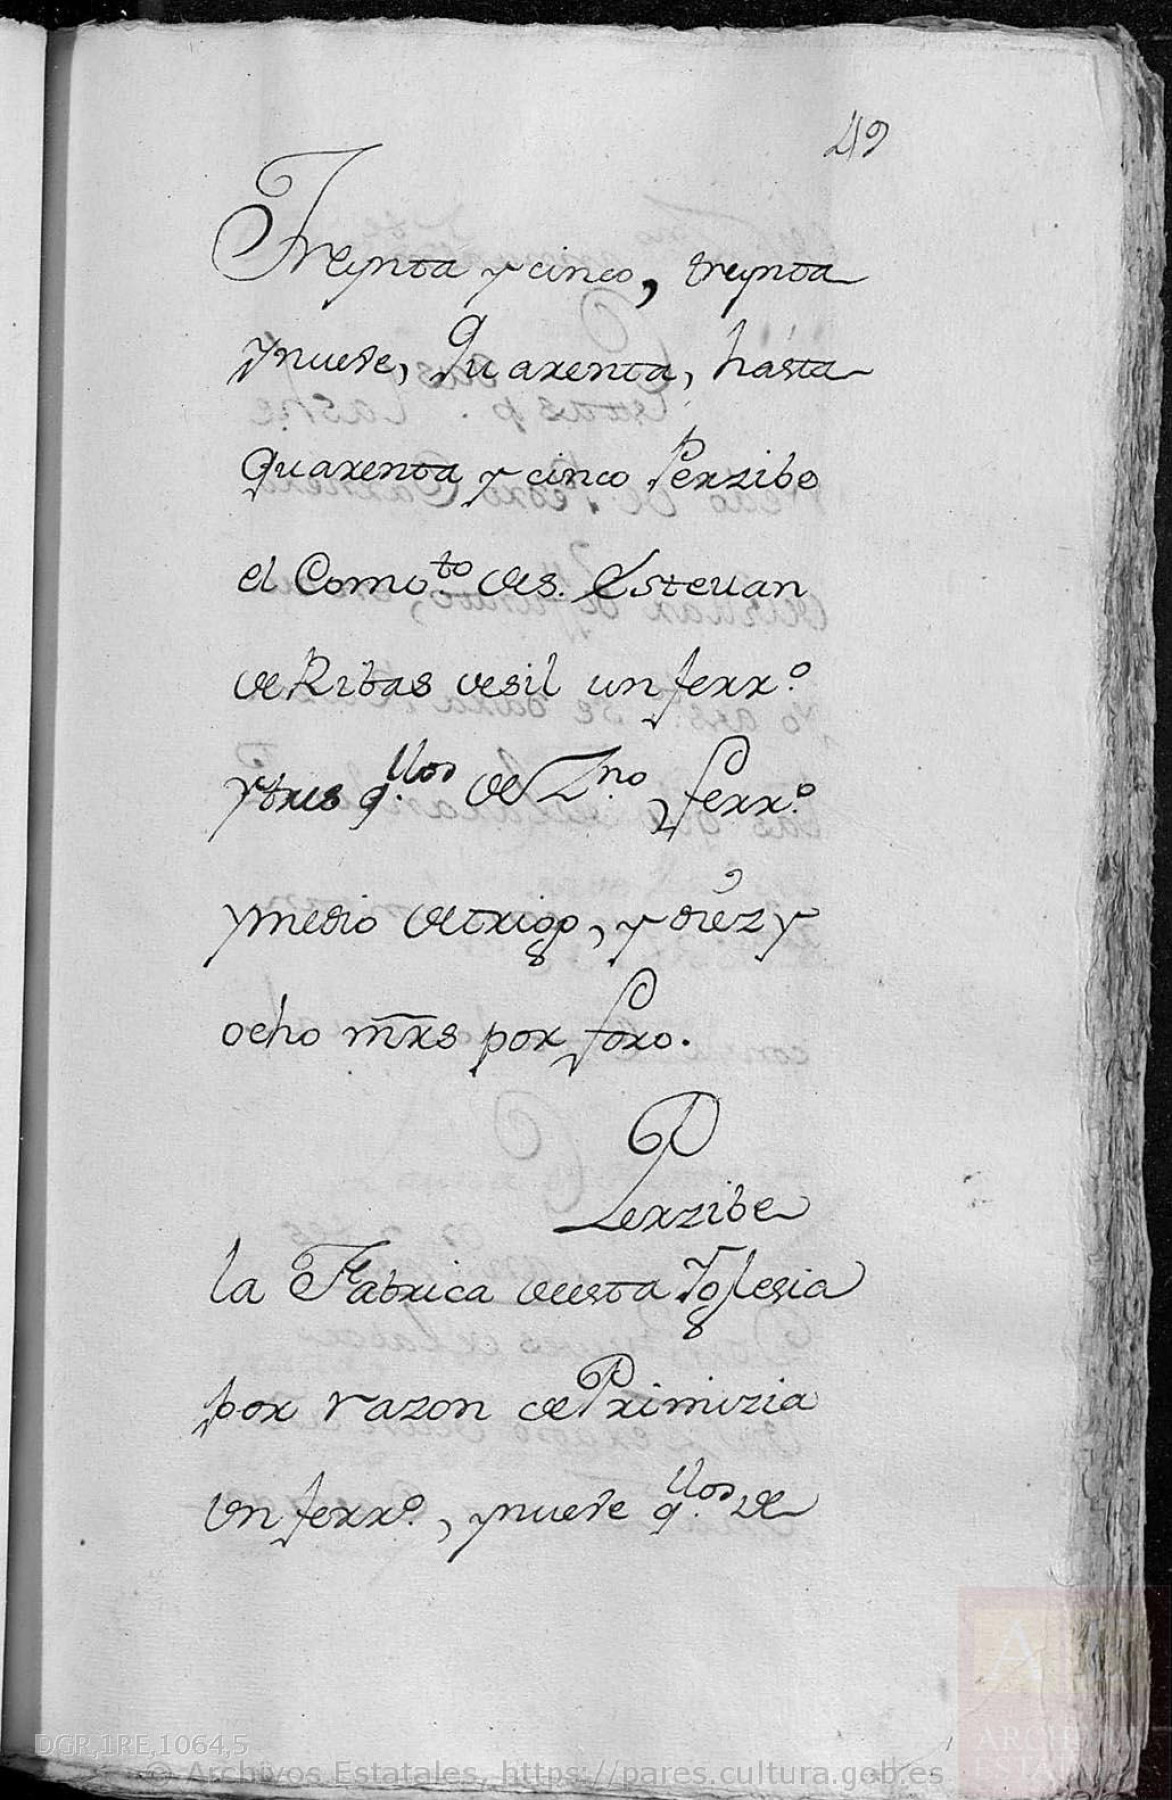 49
Treynta y cinco, treynta
y nueve, Quarenta, hasta
quarenta y cinco Perzibe
el Comv.to de s. Estevan
de Ribas desil un ferr.o
y tres q.llos de Zno, ferr.o
y medio de trigo, y diez y
ocho mrs por foro.
Perzibe
la Fabrica desta Yglesia
por razon de Primizia
Un ferr.o, y nueve q.llos de
DGR,1RE,1064,5
© Archivos Estatales, https://pares.cultura.gob.es